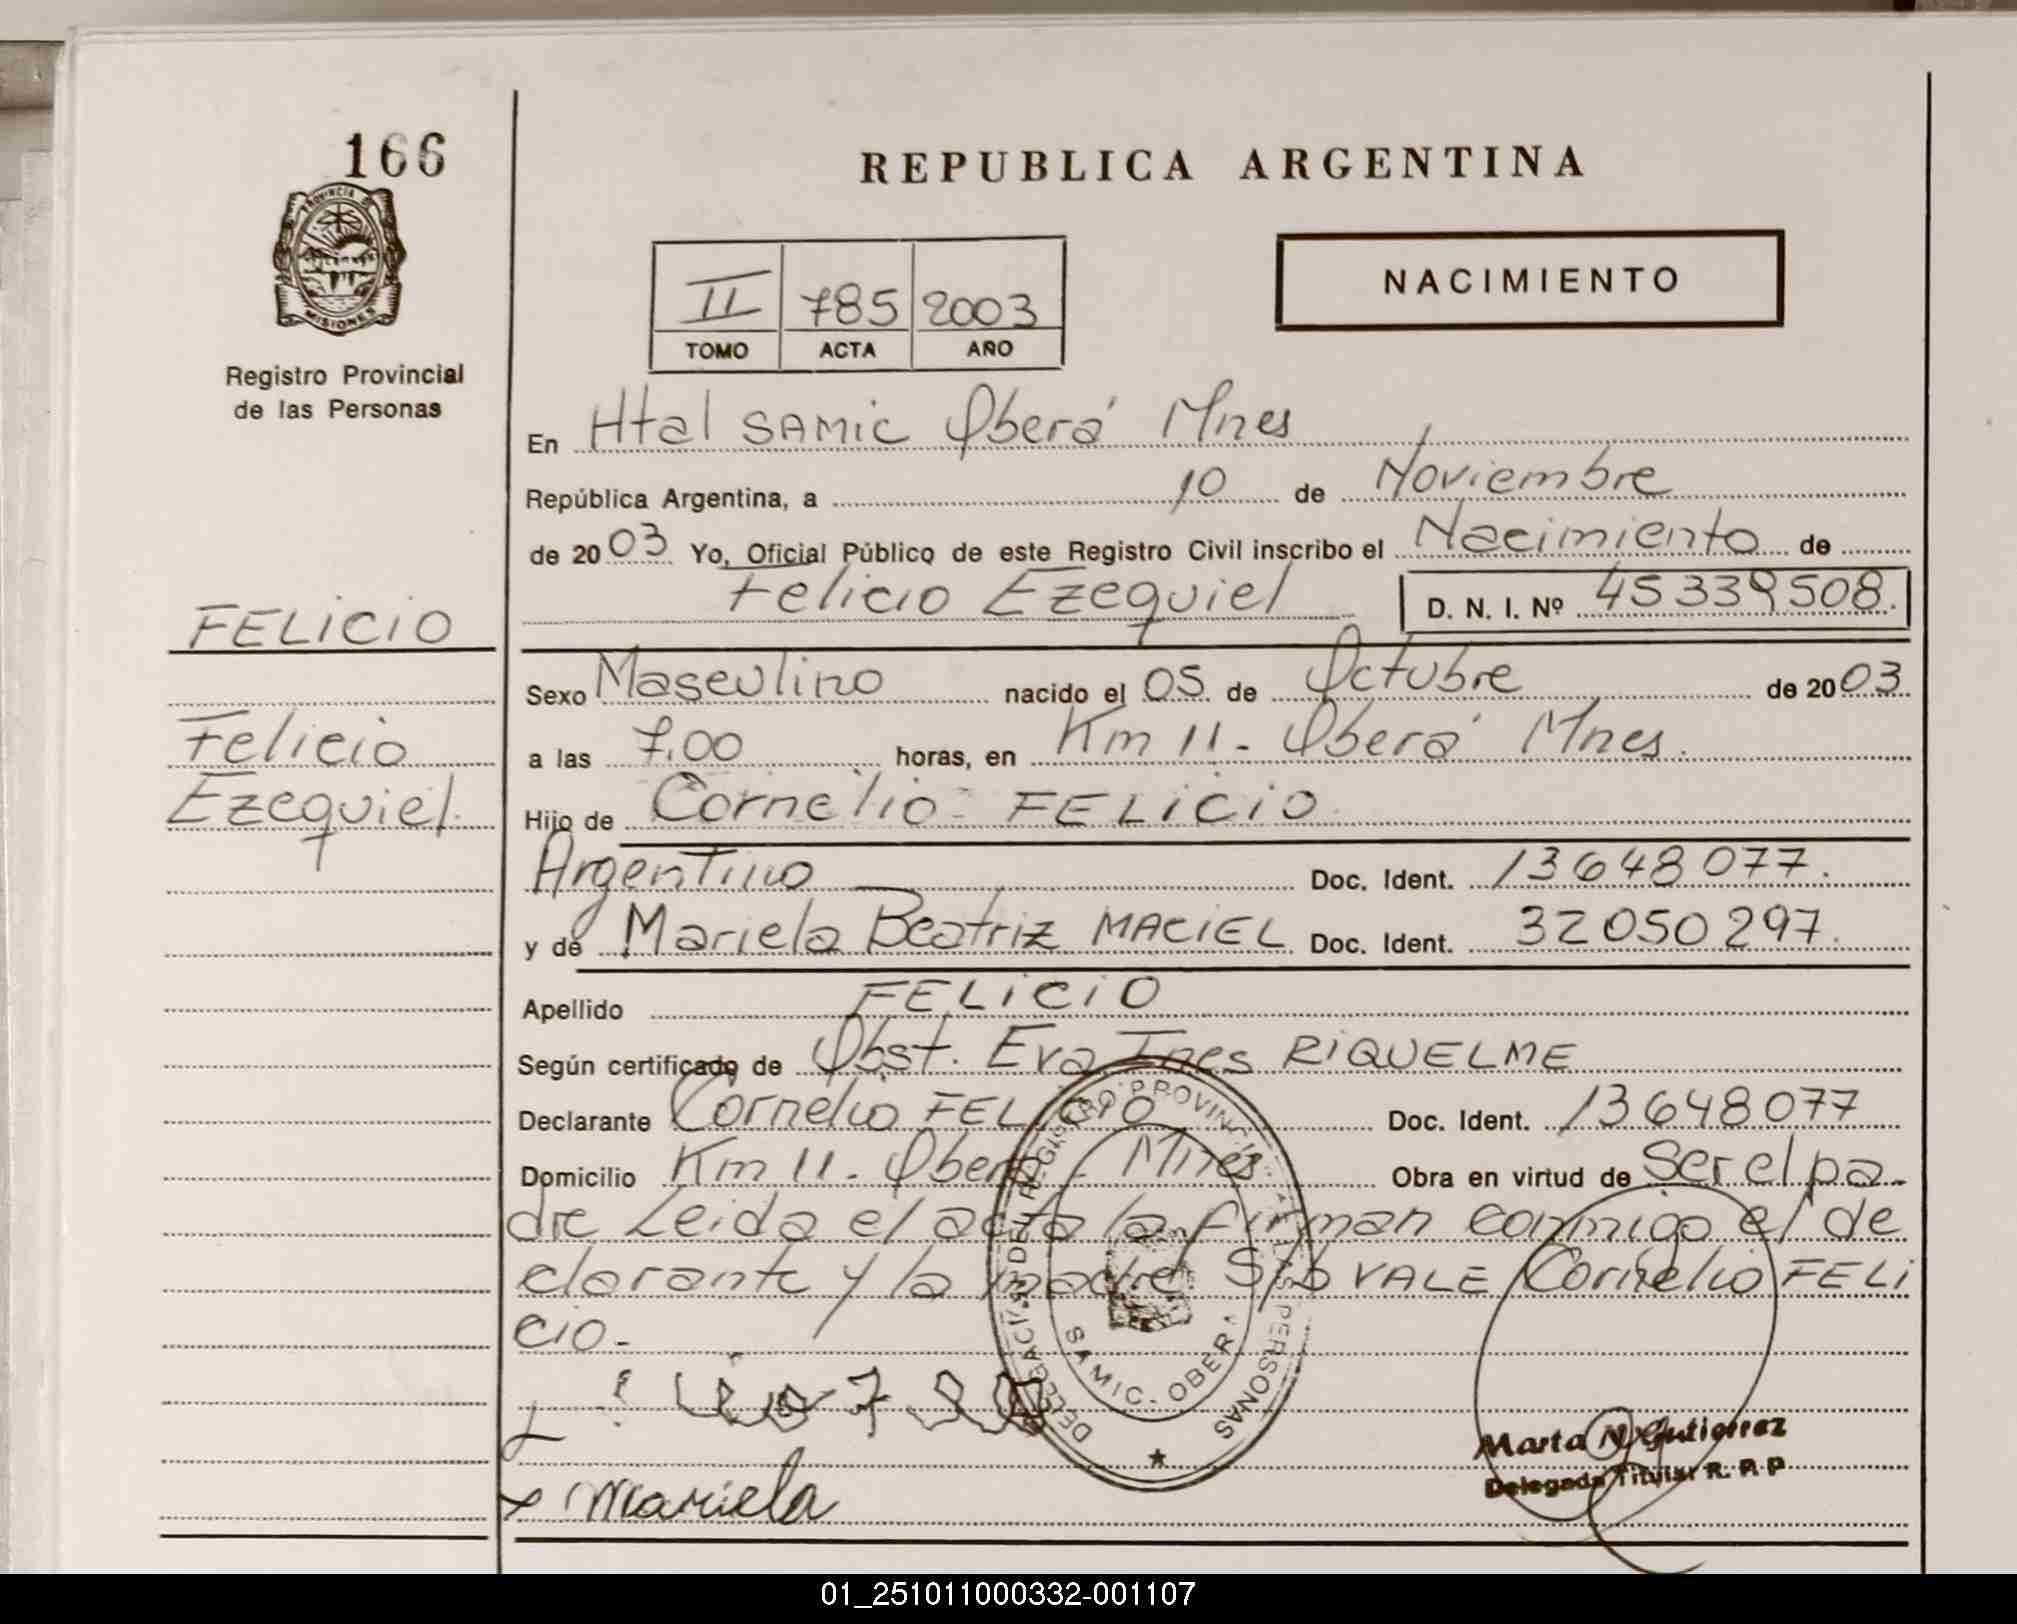 166
REPUBLICA ARGENTINA
PROVINCIA DE
MISIONES
Registro Provincial
de las Personas
II 785 2003
TOMO ACTA AÑO
NACIMIENTO
En Htal SAMIC Oberá Mnes
República Argentina, a 10 de Noviembre
de 2003 Yo, Oficial Público de este Registro Civil inscribo el Nacimiento de
Felicio Ezequiel D. N. I. Nº 45339508.
FELICIO
Sexo Masculino nacido el 05 de Octubre de 2003
Felicio
a las 7.00 horas, en Km 11 - Oberá Mnes.
Ezequiel.
Hijo de Cornelio - FELICIO
Argentino Doc. Ident. 13648077.
y de Mariela Beatriz MACIEL Doc. Ident. 32050297.
Apellido FELICIO
Según certificado de Obst. Eva Ines RIQUELME
Declarante Cornelio FELICIO Doc. Ident. 13648077
Domicilio Km 11 - Oberá - Mnes Obra en virtud de ser el pa-
dre Leida el acta la firman conmigo el de
clarante y la madre S/b VALE Cornelio FELI
CIO -
DELEGACION DEL REGISTRO PROVINCIAL DE LAS PERSONAS
SAMIC - OBERA
Marta N. Gutierrez
Delegada Titular R. P. P
x Mariela
01_251011000332-001107